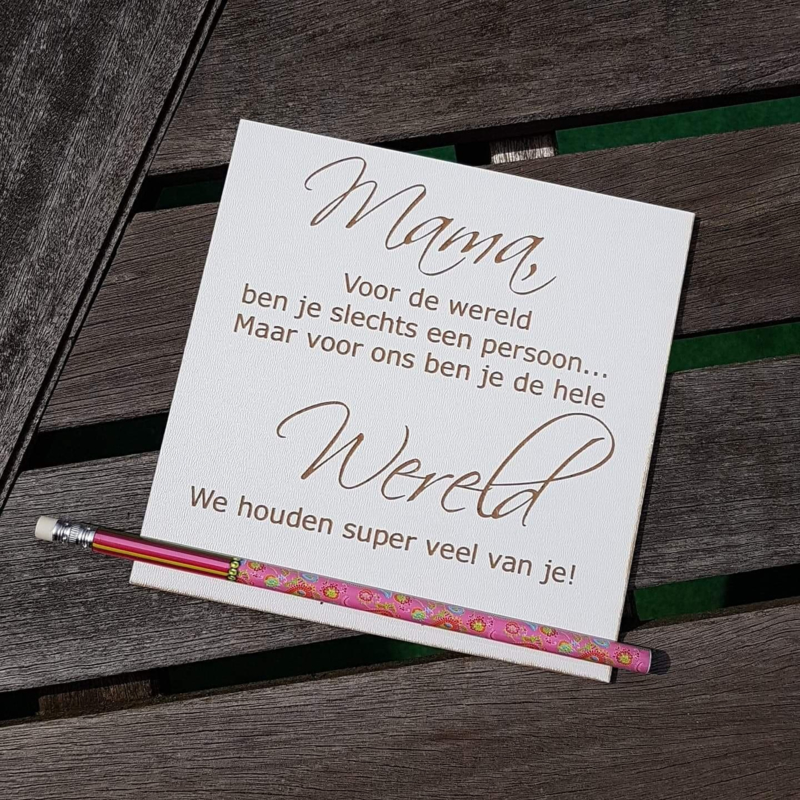 Mama,
Voor de wereld
ben je slechts een persoon...
Maar voor ons ben je de hele
Wereld
We houden super veel van je!